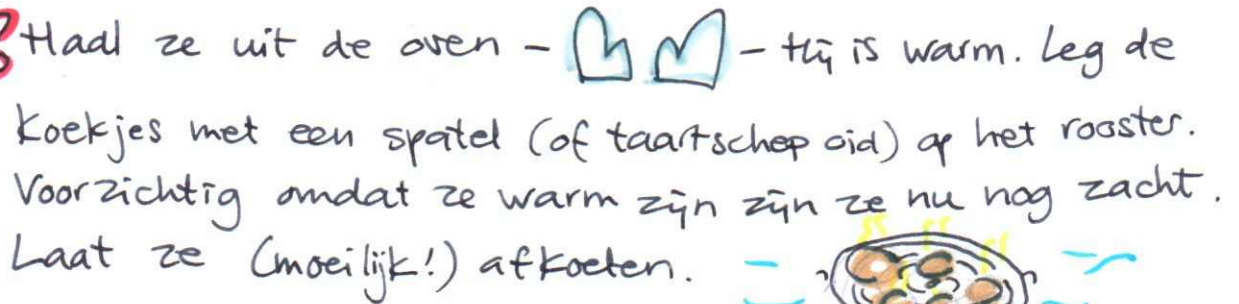 Haal ze uit de oven - - Hij is warm. Leg de
koekjes met een spatel (of taartschep oid) op het rooster.
Voorzichtig omdat ze warm zijn zijn ze nu nog zacht.
Laat ze (moeilijk!) afkoelen.